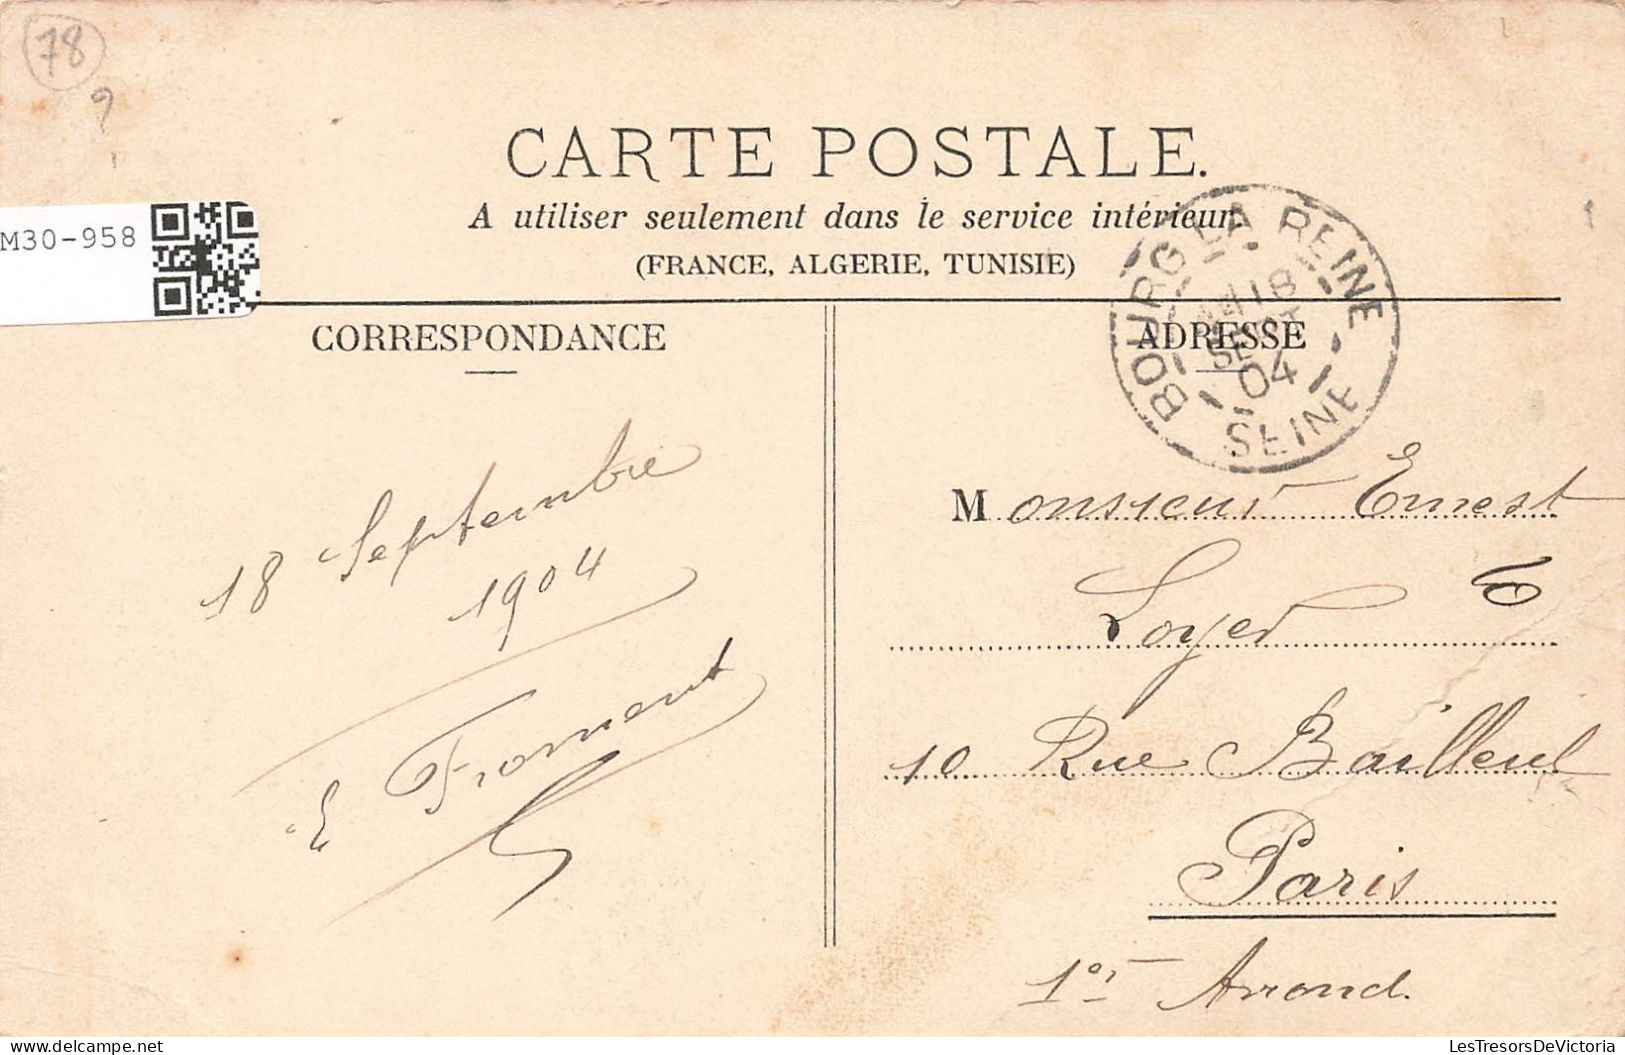 78
?
CARTE POSTALE.
A utiliser seulement dans le service intérieur
(FRANCE, ALGERIE, TUNISIE)
M30-958
BOURG LA REINE
18
SEPT
04
SEINE
CORRESPONDANCE
ADRESSE
18 Septembre
1904
E Froment
Monsieur Ernest
Loyer
10 Rue Bailleul
Paris
1er Arrond.
LesTresorsDeVictoria